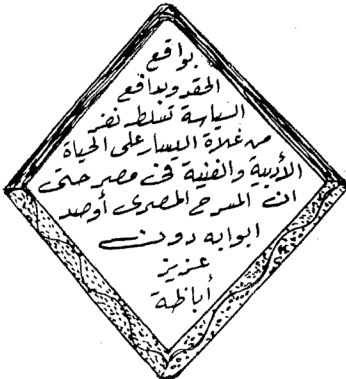 بواقع
الحقد وبدافع
السياسة تسلط نفر
من غلاة اليسار على الحياة
الأدبية والفنية فى مصر حتى
ان المسرح المصرى أوصد
ابوابه دون
عزيز
أباظة